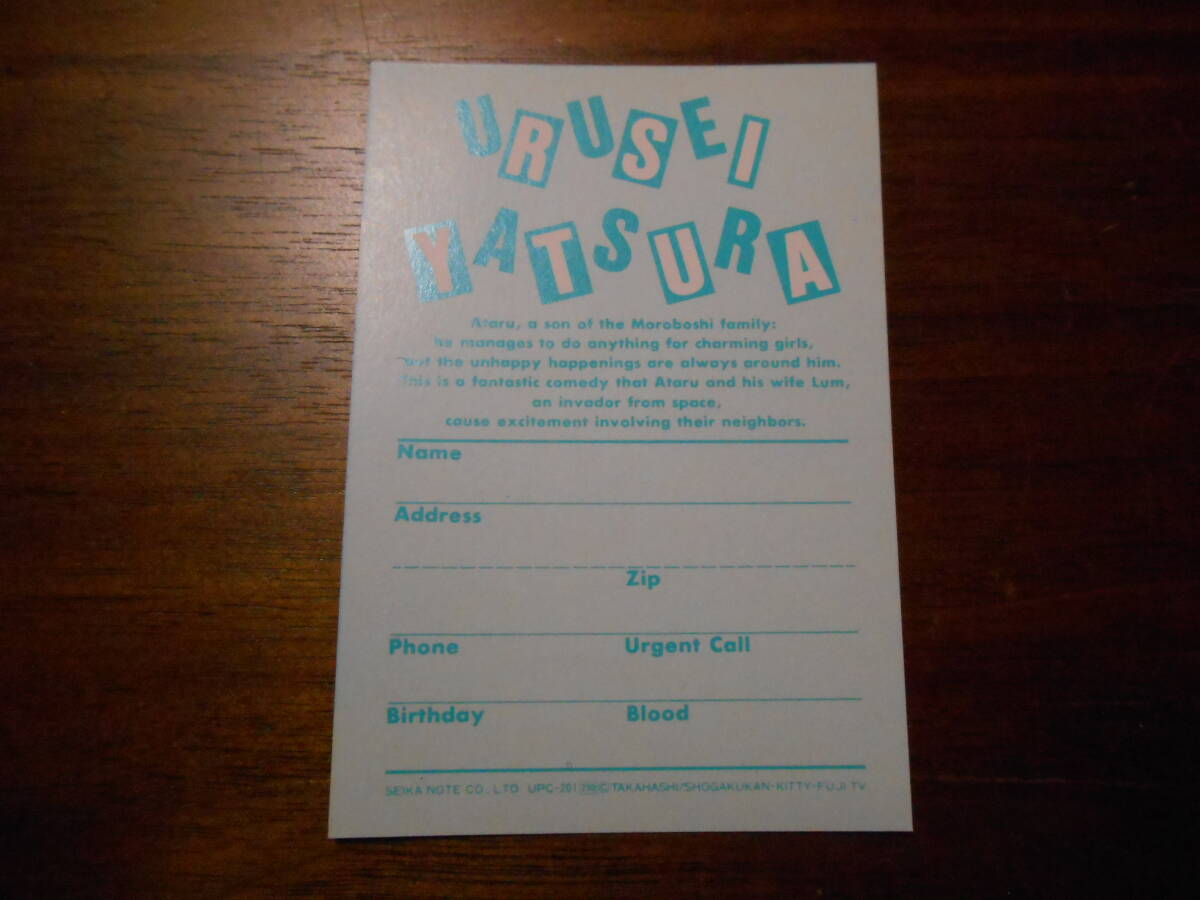 URUSEI
YATSURA
Ataru, a son of the Moroboshi family:
he manages to do anything for charming girls,
but the unhappy happenings are always around him.
This is a fantastic comedy that Ataru and his wife Lum,
an invador from space,
cause excitement involving their neighbors.
Name
Address
Zip
Phone Urgent Call
Birthday Blood
SEIKA NOTE CO., LTD. UPC-201 C/TAKAHASHI/SHOGAKUKAN·KITTY·FUJI TV